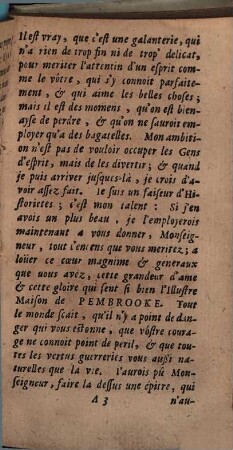 Il est vray, que c'est une galanterie, qui
n'a rien de trop fin ni de trop delicat,
pour meriter l'attentin d'un esprit com-
me le vôtre, qui s'y connoit parfaite-
ment, & qui aime les belles choses;
mais il est des momens, qu'on est bien-
ayse de perdre, & qu'on ne sauroit em-
ployer qu'a des bagatelles. Mon ambiti-
on n'est pas de vouloir occuper les Gens
d'esprit, mais de les divertir; & quand
je puis arriver jusques-là, je crois d'a-
voir assez fait. Je suis un faiseur d'Hi-
storietes; c'est mon talent: Si j'en
avois un plus beau, je l'employerois
maintenant a vous donner, Monsei-
gneur, tout l'encens que vous meritez; a
loüer ce cœur magnime & generaux
que vous avéz, cette grandeur d'ame
& cette gloire qui sent si bien l'Illustre
Maison de PEMBROOKE. Tout
le monde scait, qu'il n'y a point de dan-
ger qui vous estonne, que vôstre coura-
ge ne connoit point de peril, & que tou-
tes les vertus guerreries vous außi natu-
relles que la vie. J'aurois pû Mon-
seigneur, faire la dessus une epitre, qui
A 3 n'au-